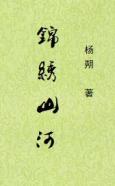 錦綉山河
杨朔 著